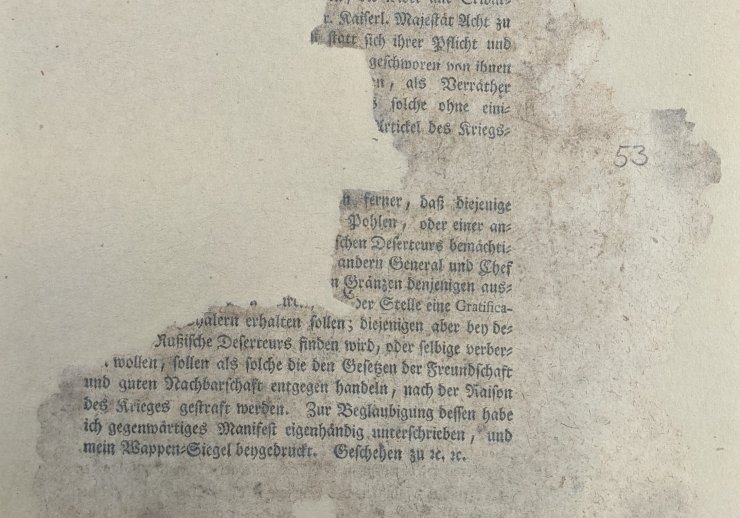 r. Kaiserl. Majestät Acht zu
statt sich ihrer Pflicht und
geschworen von ihnen
en, als Verräther
solche ohne eini-
Artickel des Kriegs-
53
ferner, daß diejenige
Pohlen, oder einer an-
schen Deserteurs bemächti-
andern General und Chef
n Gränzen denjenigen aus-
der Stelle eine Gratifica-
thalern erhalten sollen; diejenigen aber bey de-
Rußische Deserteurs finden wird, oder selbige verber-
wollen, sollen als solche die den Gesetzen der Freundschaft
und guten Nachbarschaft entgegen handeln, nach der Raison
des Krieges gestraft werden. Zur Beglaubigung dessen habe
ich gegenwärtiges Manifest eigenhändig unterschrieben, und
mein Wappen-Siegel beygedruckt. Geschehen zu ꝛc. ꝛc.